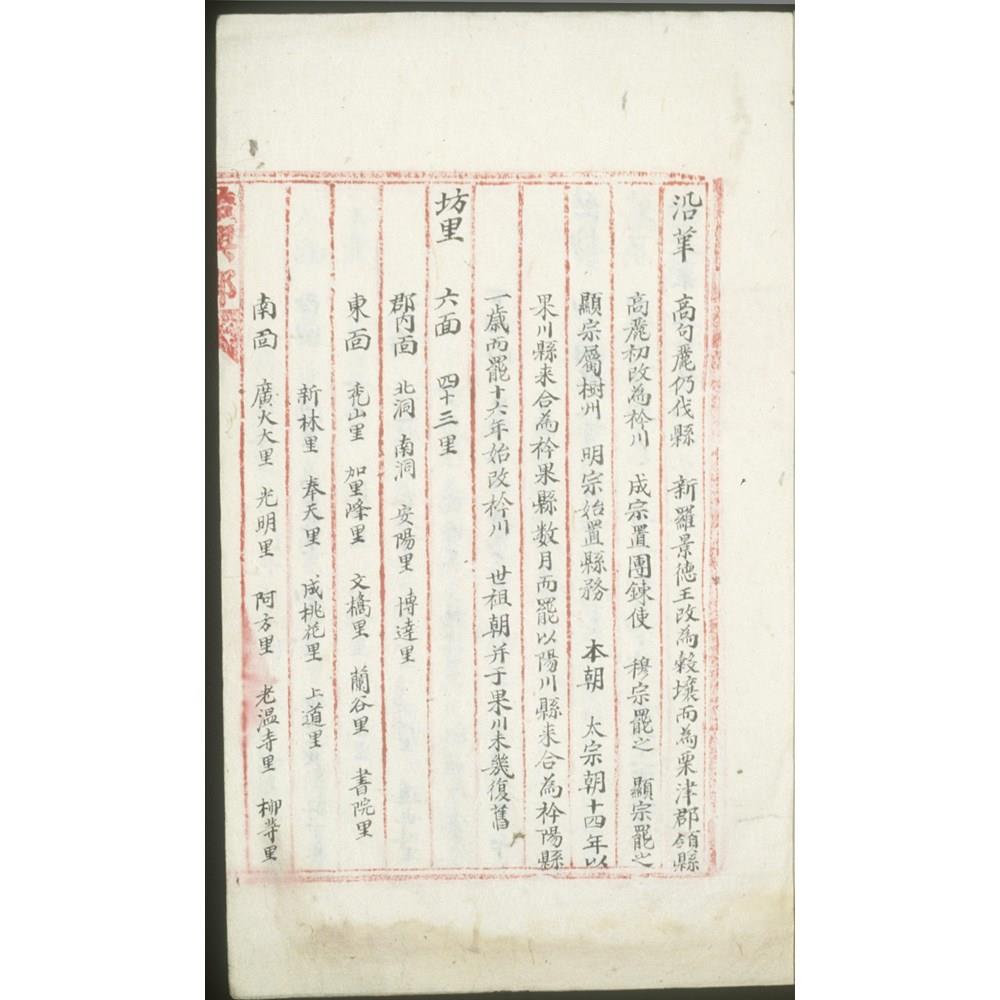 沿革 高句麗仍伐縣 新羅景德王改為穀壤而為栗津郡領縣
高麗初改為衿川 成宗置團鍊使 穆宗罷之 顯宗罷之
顯宗屬樹州 明宗始置縣務 本朝 太宗朝十四年以
果川縣来合為衿果縣数月而罷以陽川縣来合為衿陽縣
一歲而罷十六年始改衿川 世祖朝并于果川未幾復舊
坊里 六面 四十三里
郡内面 北洞 南洞 安陽里 博達里
東面 禿山里 加里峰里 文橋里 蘭谷里 書院里
新林里 奉天里 成桃花里 上道里
南面 廣火大里 光明里 阿方里 老温寺里 柳等里